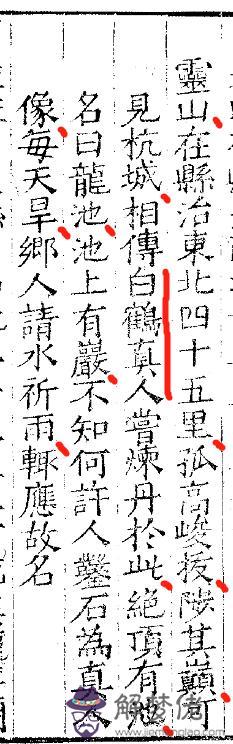 靈山在縣治東北四十五里孤高峻拔陟其巔可
見杭城相傳白鶴真人嘗煉丹於此絕頂有池
名曰龍池池上有巖不知何許人鑿石為真人
像每天旱鄉人請水祈雨輒應故名
解梦佬
jiemenglao.com